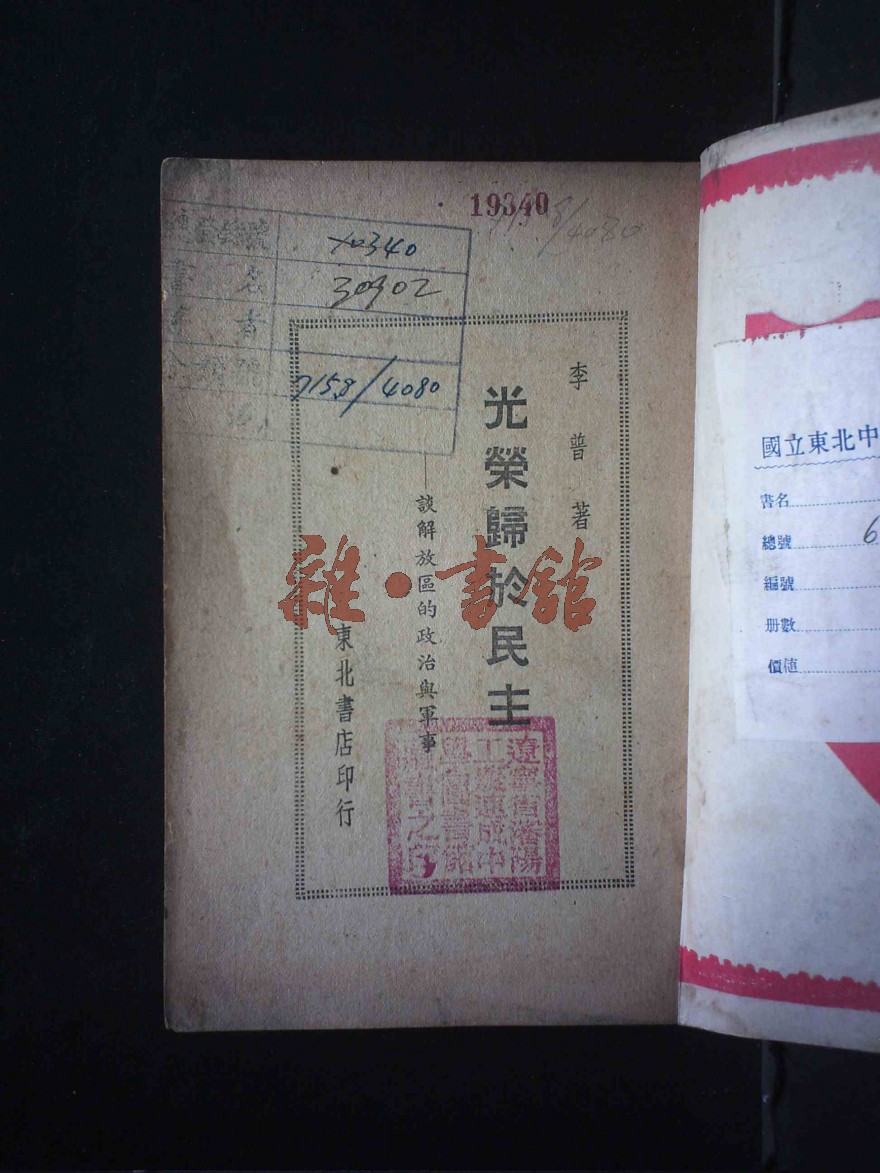 19340
7158/4080
10340
名
30902
者
7158/4080
李普著
光榮歸於民主
——談解放區的政治與軍事
東北書店印行
雜·書館
遼寧省瀋陽
工農速成中
學圖書館
藏書之章
國立東北中
書名
總號 6
編號
册數
價值